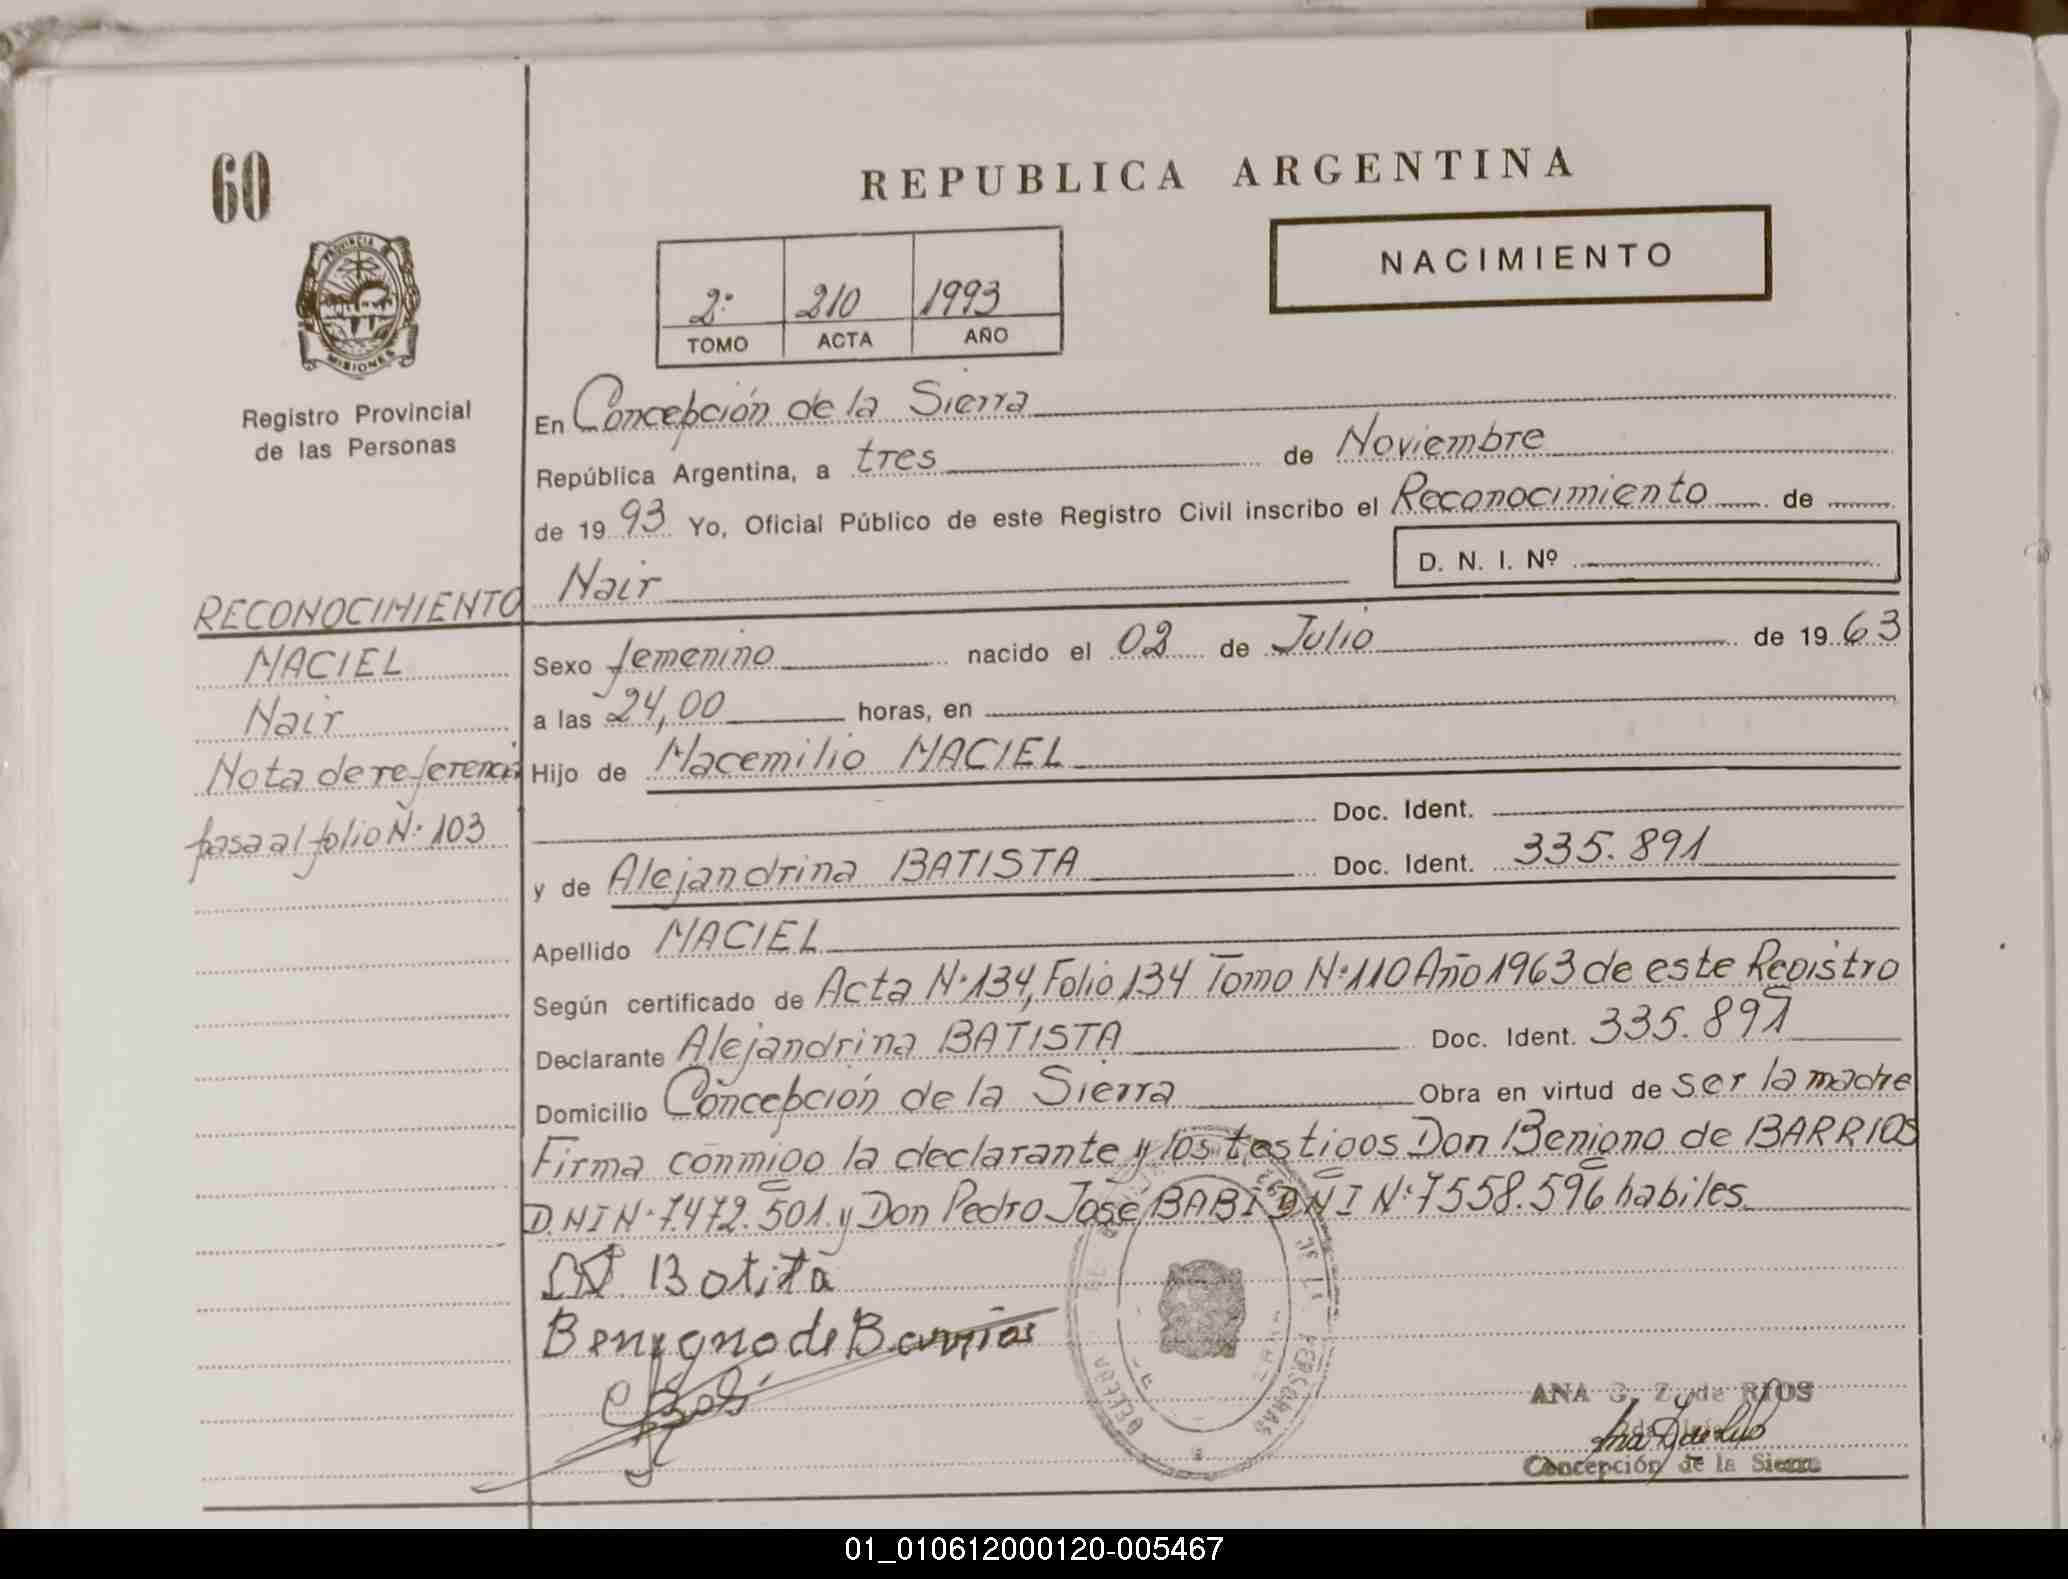 60
REPUBLICA ARGENTINA
NACIMIENTO
2º 210 1993
TOMO ACTA AÑO
PROVINCIA DE
MISIONES
Registro Provincial
de las Personas
En Concepción de la Sierra
República Argentina, a tres de Noviembre
de 1993 Yo, Oficial Público de este Registro Civil inscribo el Reconocimiento de
D. N. I. Nº
Nair
RECONOCIMIENTO
MACIEL
Nair
Nota de referencia
pasa al folio Nº 103
Sexo femenino nacido el 02 de Julio de 1963
a las 24,00 horas, en
Hijo de Macemilio MACIEL
Doc. Ident.
y de Alejandrina BATISTA Doc. Ident. 335.891
Apellido MACIEL
Según certificado de Acta Nº 134, Folio 134 Tomo Nº 110 Año 1963 de este Registro
Declarante Alejandrina BATISTA Doc. Ident. 335.891
Domicilio Concepción de la Sierra Obra en virtud de ser la madre
Firma conmigo la declarante y los testigos Don Benigno de BARRIOS
D.NI Nº 7.472.501. y Don Pedro José BABI DNI Nº 7558.596 habiles.
Botita
Benigno de Barrios
ANA G. Z. de RIOS
Concepción de la Sierra
01_010612000120-005467